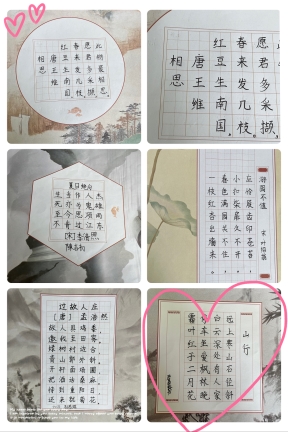 相思
唐 王维
红豆生南国，
春来发几枝。
愿君多采撷，
此物最相思。
相思
唐 王维
红豆生南国，
春来发几枝
愿君多采撷
夏日绝句
生当作人杰
死亦为鬼雄
至今思项羽
不肯过江东
[宋]李清照
游园不值
宋 叶绍翁
应怜屐齿印苍苔，
小扣柴扉久不开。
春色满园关不住，
一枝红杏出墙来。
过故人庄
[唐]孟浩然
故人具鸡黍
邀我至田家
绿树村边合
青山郭外斜
开轩面场圃
把酒话桑麻
待到重阳日
还来就菊花
山行
远上寒山石径斜
白云深处有人家
停车坐爱枫林晚
霜叶红于二月花